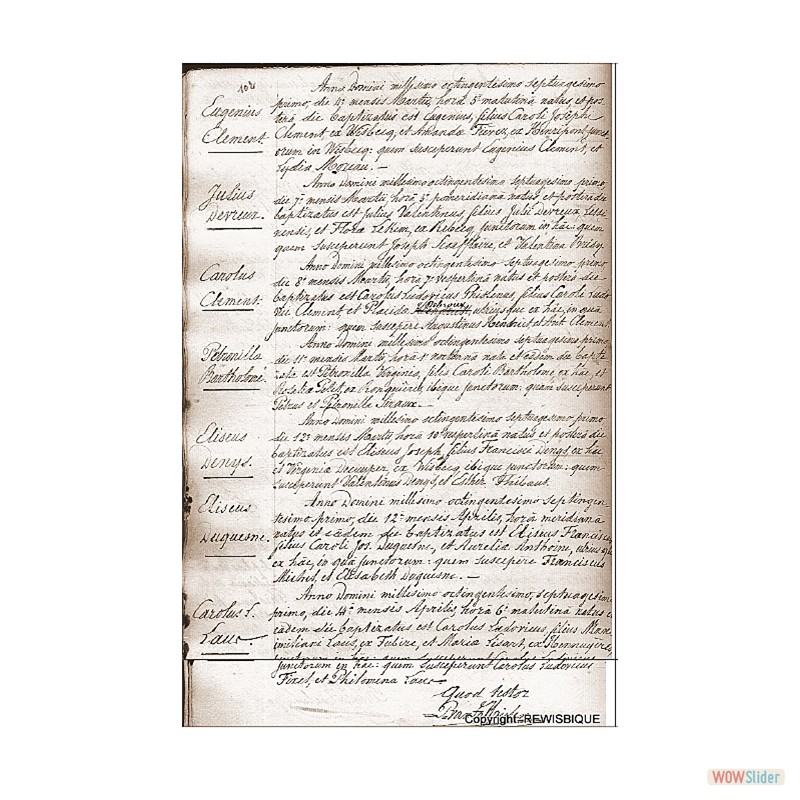 108
Eugenius
Clement.
Anno Domini millesimo octingentesimo septuagesimo
primo, die 4ª mensis Martii, horâ 5ª matutinâ natus, et pos-
terâ die baptizatus est Eugenius, filius Caroli Joseph
Clement ex Wisbecq, et Amanda ex Henripont, junc-
torum in Wisbecq: quem susceperunt Eugenius Clement, et
Lydia Moreau. —
Julius
Devreux.
Anno Domini millesimo octingentesimo septuagesimo primo,
die 7ª mensis Martii, horâ 5ª pomeridianâ natus, et posterâ die
baptizatus est Julius Valentinus, filius Julii Devreux
nensis, et Flora ex Rebecq, junctorum in hâc: quem
quem susceperunt Joseph et Valentina
Carolus
Clement.
Anno Domini millesimo octingentesimo septuagesimo primo
die 8ª mensis Martii, horâ 7ª vespertinâ natus et posterâ die
baptizatus est Carolus Ludovicus filius Caroli Ludo
vici Clement, et Placida utriusque ex hâc, in quâ
junctorum: quem suscepere Augustinus et Ant. Clement
Petronilla
Bartholomé.
Anno Domini millesimo octingentesimo septuagesimo primo,
die 11ª mensis Martii, horâ 1ª nocturnâ nata et eâdem die bapti
zata est Petronilla Virginia, filia Caroli Bartholomé, ex hâc, et
Rosalia ex ibique junctorum: quam susceperunt
Petrus et Petronilla
Eliseus
Denys.
Anno Domini millesimo octingentesimo septuagesimo primo
die 12ª mensis Martii, horâ 10ª vespertinâ natus et posterâ die
baptizatus est Eliseus Joseph, filius Francisci Denys ex hâc
et Virginia Decuyper, ex Wisbecq ibique junctorum: quem
susceperunt Valentinus Denys, et Esther Thibaut.
Eliseus
Duquesne.
Anno Domini millesimo octingentesimo septingen-
tesimo primo, die 12ª mensis Aprilis, horâ meridianâ
natus et eâdem die baptizatus est Eliseus Franciscus,
filius Caroli Jos. Duquesne, et Aurelia Anthoine,
ex hâc, in quâ junctorum: quem suscepere Franciscus
Michel, et Elisabeth Duquesne. —
Carolus L.
Laus
Anno Domini millesimo octingentesimo, septuagesimo
primo, die 14ª mensis Aprilis, horâ 6ª matutinâ natus et
eâdem die baptizatus est Carolus Ludovicus, filius
imiliani Laus, ex Tubize, et Maria ex
junctorum in hâc: quem susceperunt Carolus Ludovicus
et Philomina Laus
Quod testor
Copyright=REWISBIQUE
WOWSlider